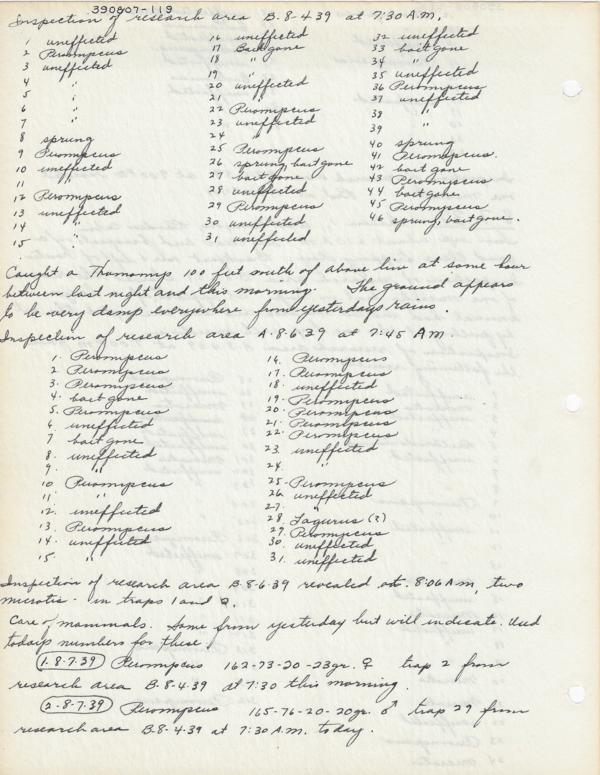 390807-119
Inspection of research area B-8-4-39 at 7:30 A.M.
1 uneffected
2 Peromyscus
3 uneffected
4 "
5 "
6 "
7 "
8 sprung
9 Peromyscus
10 uneffected
11 "
12 Peromyscus
13 uneffected
14 "
15 "
16 uneffected
17 Bait gone
18 "
19 "
20 uneffected
21 "
22 Peromyscus
23 uneffected
24 "
25 Peromyscus
26 sprung, bait gone
27 bait gone
28 uneffected
29 Peromyscus
30 uneffected
31 uneffected
32 uneffected
33 bait gone
34 "
35 uneffected
36 Peromyscus
37 uneffected
38 "
39 "
40 sprung
41 Peromyscus.
42 bait gone
43 Peromyscus
44 bait gone
45 Peromyscus
46 sprung, bait gone.
Caught a Thomomys 100 feet south of above line at some hour
between last night and this morning. The ground appears
to be very damp everywhere from yesterdays rains.
Inspection of research area A-8-6-39 at 7:45 A.M.
1. Peromyscus
2 Peromyscus
3. Peromyscus
4. bait gone
5. Peromyscus
6. uneffected
7 bait gone
8. uneffected
9. "
10 Peromyscus
11 "
12. uneffected
13. Peromyscus
14. uneffected
15. "
16. Peromyscus
17. Peromyscus
18. uneffected
19. Peromyscus
20. Peromyscus
21. Peromyscus
22. Peromyscus
23. uneffected
24. "
25. Peromyscus
26. uneffected
27. "
28. Lagurus (?)
29. Peromyscus
30. uneffected
31. uneffected
Inspection of research area B-8-6-39 revealed at 8:06 A.m, two
microtis - in traps 1 and 2.
Care of mammals. Some from yesterday but will indicate. Used
todays numbers for these.
1-8-7-39 Peromyscus 162-73-20-23gr. ♀ trap 2 from
research area B-8-4-39 at 7:30 this morning.
2-8-7-39 Peromyscus 165-76-20-20gr. ♂ trap 29 from
research area B-8-4-39 at 7:30 A.M. today.